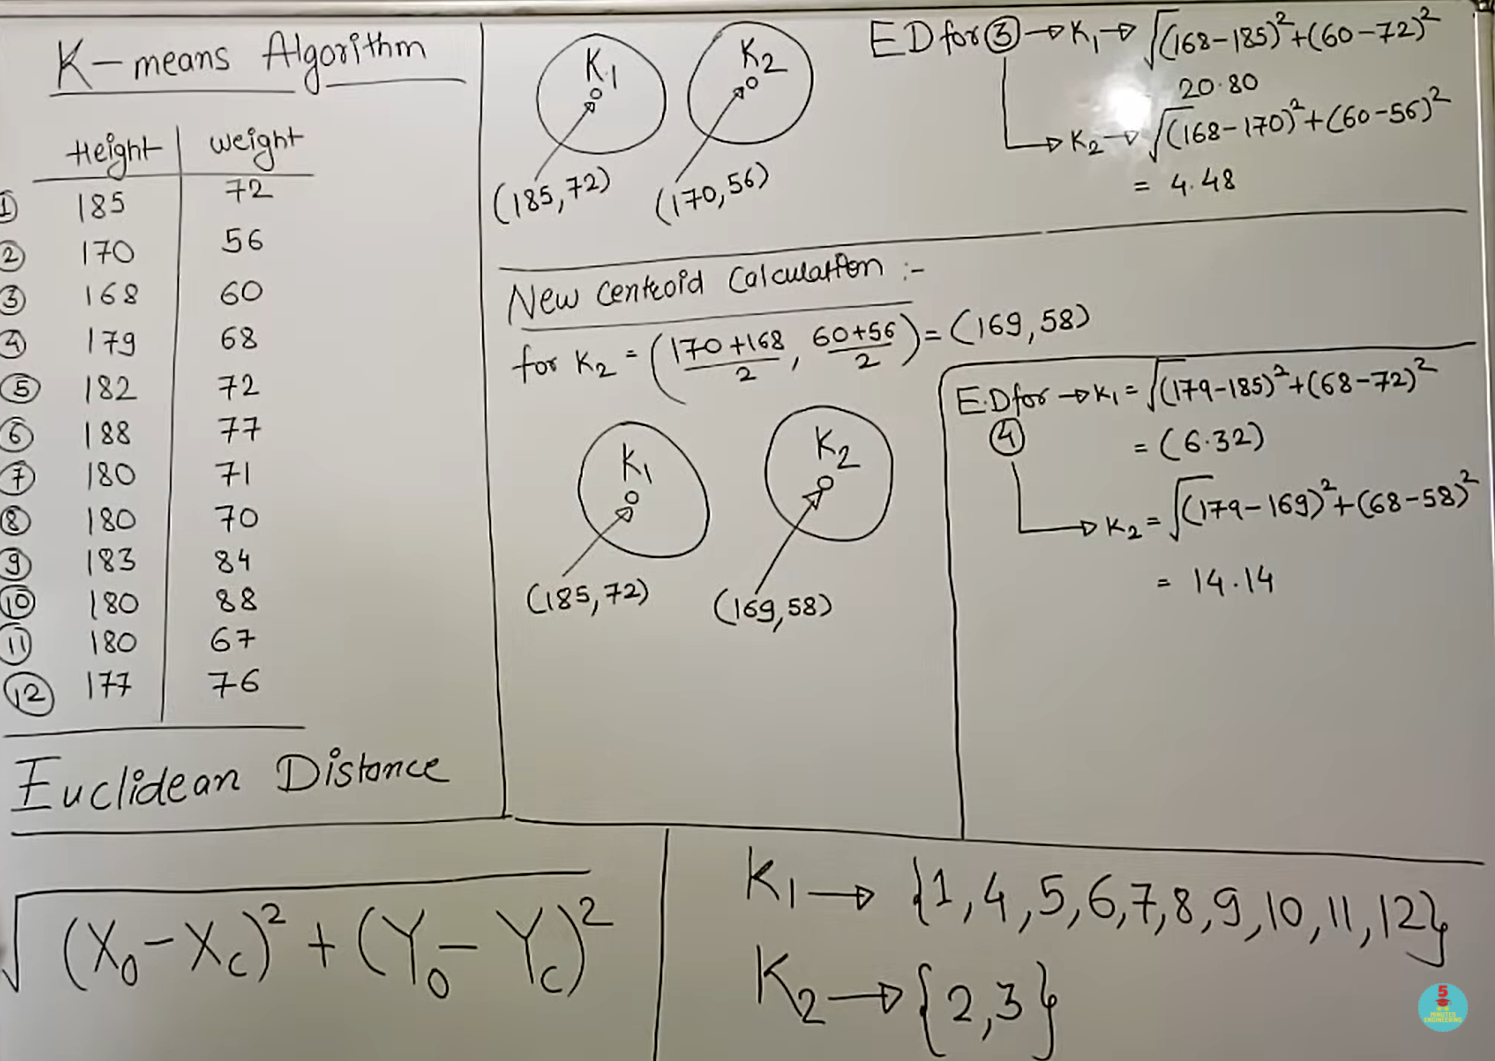 K-means Algorithm
Height weight
① 185 72
② 170 56
③ 168 60
④ 179 68
⑤ 182 72
⑥ 188 77
⑦ 180 71
⑧ 180 70
⑨ 183 84
⑩ 180 88
⑪ 180 67
⑫ 177 76
Euclidean Distance
√(X₀-X_c)² + (Y₀-Y_c)²
K₁
K₂
(185,72)
(170,56)
ED for ③ → K₁ → √(168-185)²+(60-72)²
20.80
K₂ → √(168-170)²+(60-56)²
= 4.48
New Centroid Calculation :-
for K₂ = (170+168/2, 60+56/2) = (169,58)
K₁
K₂
(185,72)
(169,58)
E.D for → K₁ = √(179-185)²+(68-72)²
④
= (6.32)
K₂ = √(179-169)²+(68-58)²
= 14.14
K₁ → {1,4,5,6,7,8,9,10,11,12}
K₂ → {2,3}
5
MINUTES
ENGINEERING